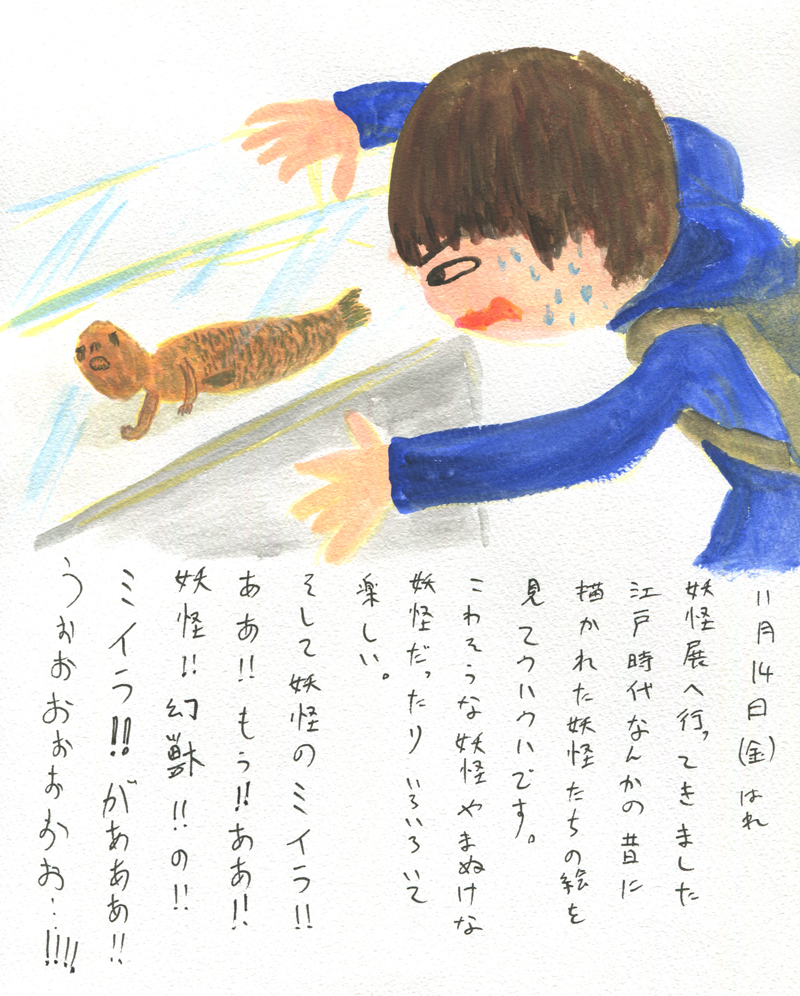 11月14日(金)はれ
妖怪展へ行ってきました
江戸時代なんかの昔に
描かれた妖怪たちの絵を
見てウハウハです。
こわそうな妖怪やまぬけな
妖怪だったりいろいろいて
楽しい。
そして妖怪のミイラ!!
ああ!!もぅ!!ああ!!
妖怪!!幻獣!!の!!
ミイラ!!がぁぁぁ!!
うぉぉおぉぉおぉ…!!!!